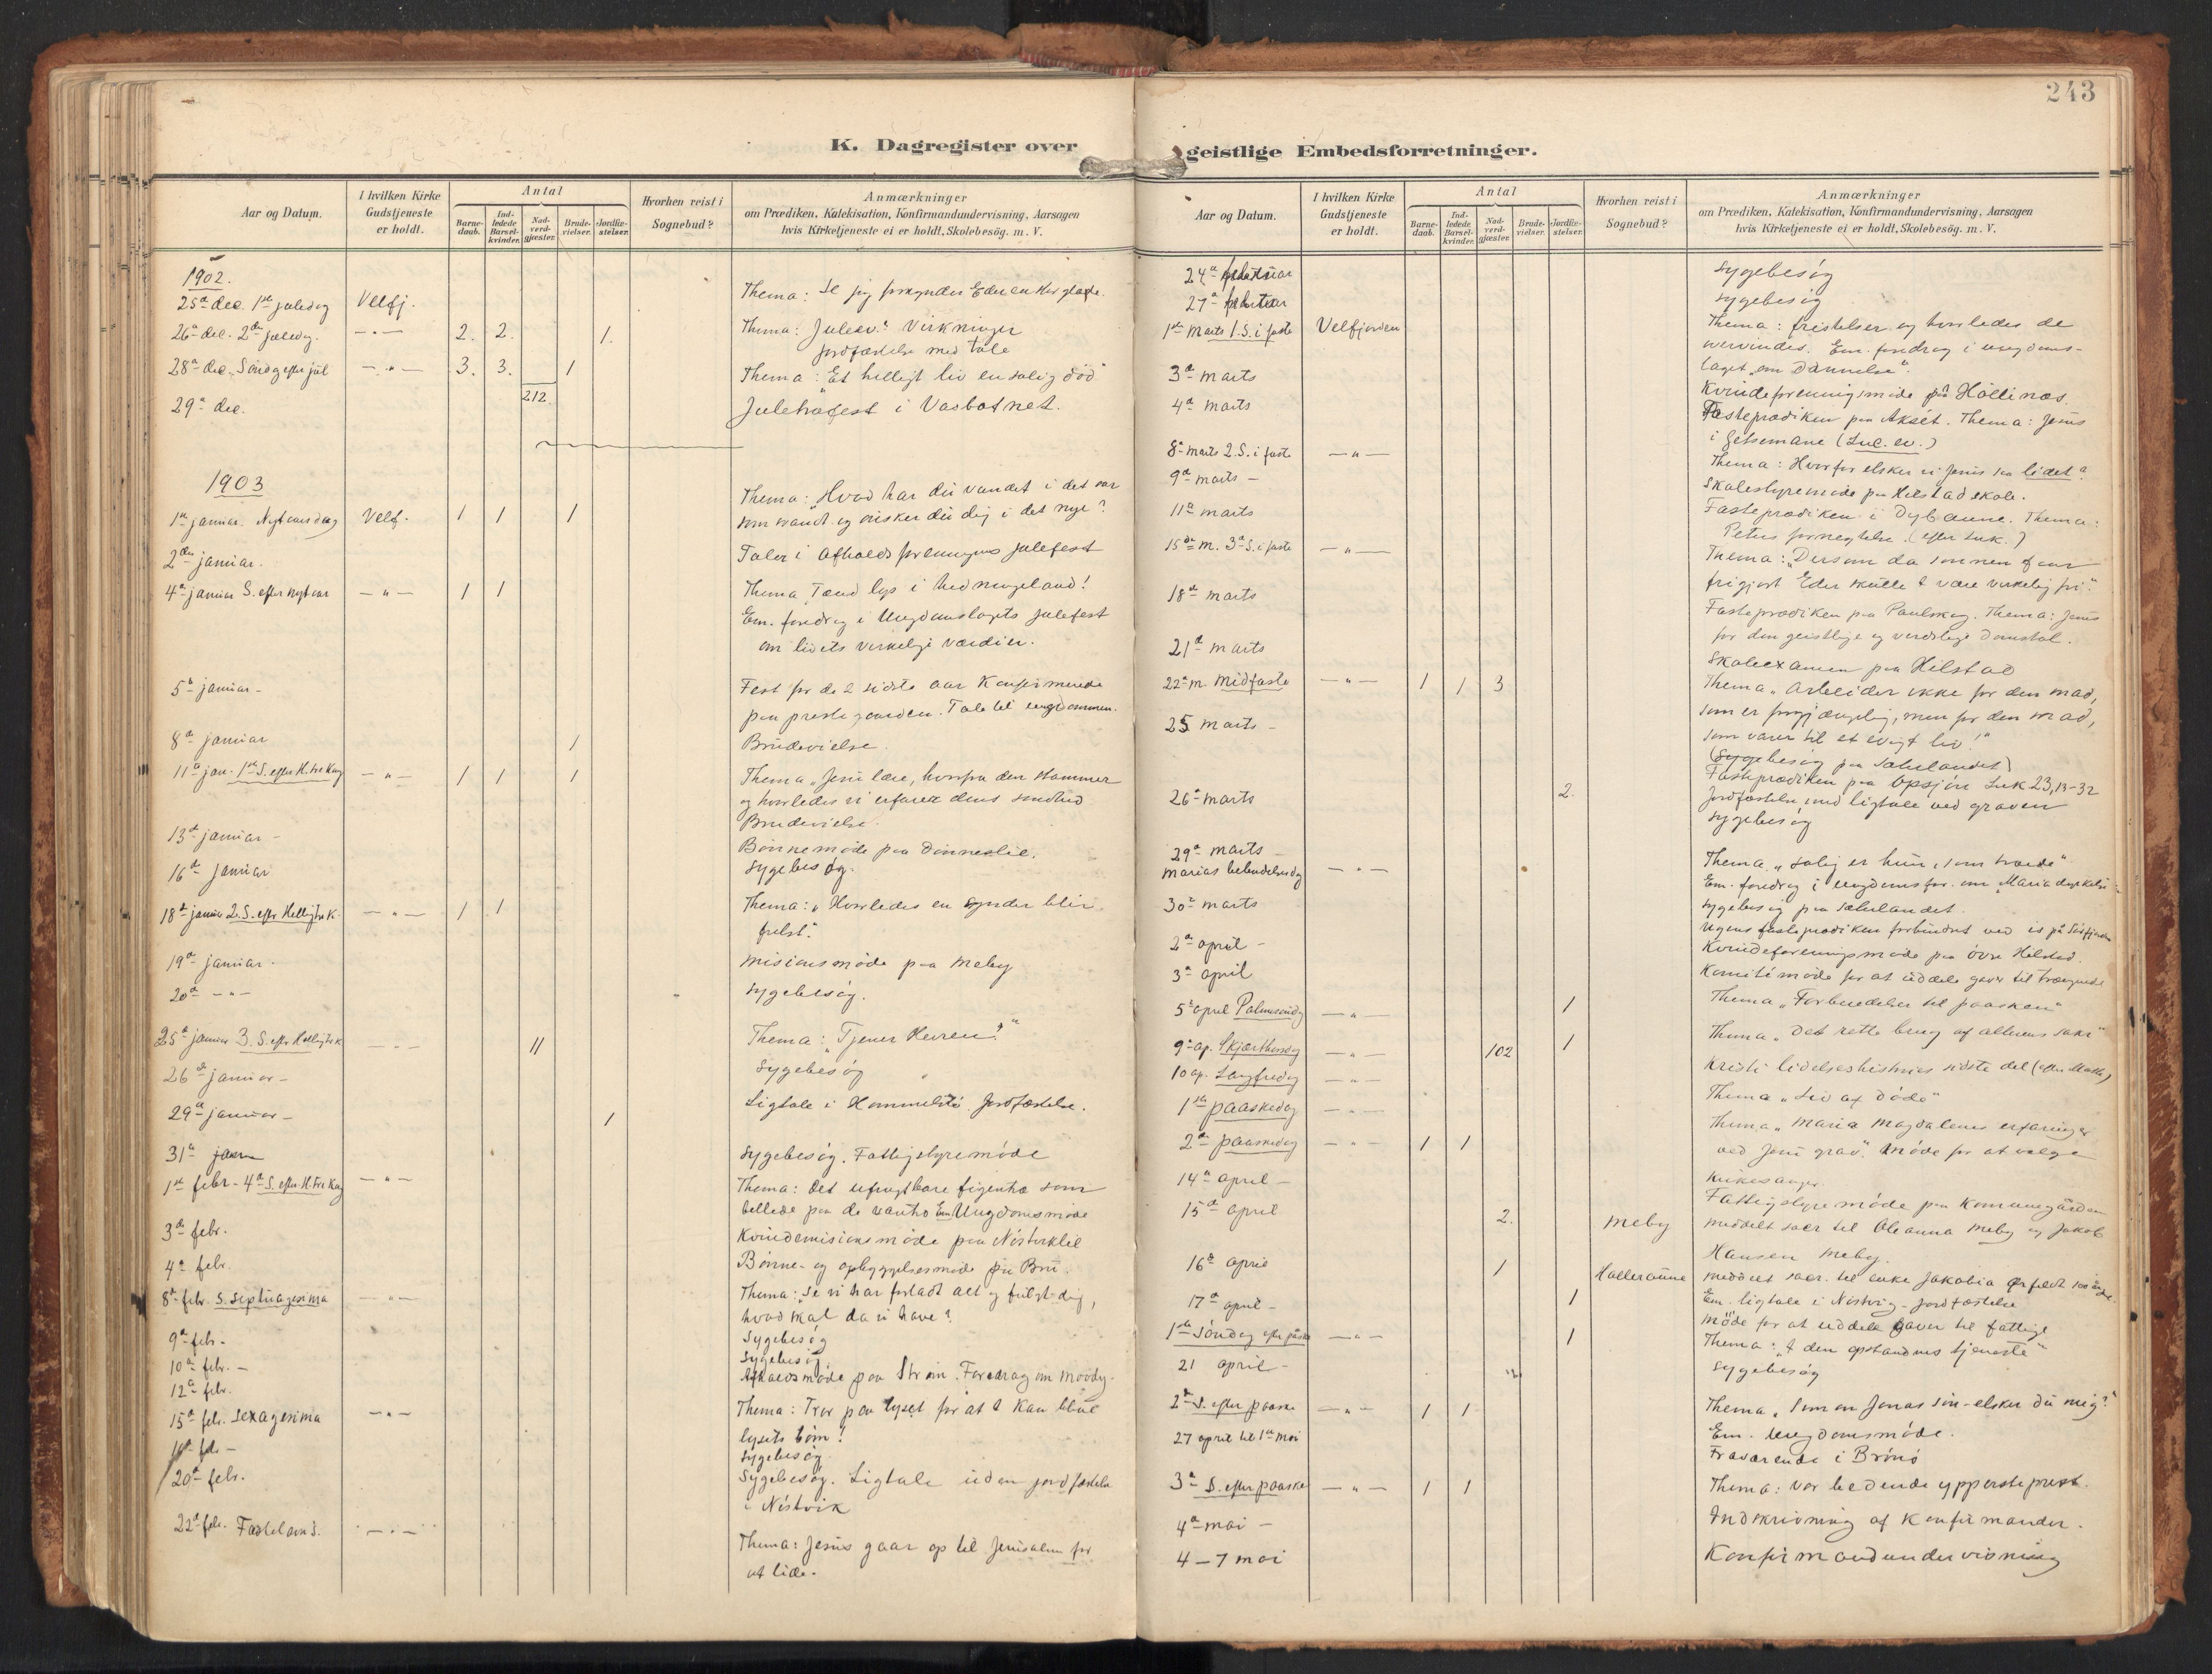 243
K. Dagregister over
geistlige Embedsforretninger.
Aar og Datum.
I hvilken Kirke Gudstjeneste er holdt.
Antal
Barne-daab.
Ind-ledede Barsel-kvinder.
Nad-verd-gjæster.
Brude-vielser.
Jordfæ-stelser.
Hvorhen reist i Sognebud?
Anmærkninger
om Prædiken, Katekisation, Konfirmandundervisning, Aarsagen
hvis Kirketjeneste ei er holdt, Skolebesög. m. V.
1902.
25de dec. 1ste juledag Velfj. Thema: Se jeg forkynder Eder en stor glæde.
26de dec. 2den juledag. — " — 2. 2. 1. Thema: Juleev.s Virkninger
jordfæstelse med tale
28de dec. Søndag efter jul — " — 3. 3. 1 Thema: "Et helligt liv en salig död"
212.
29de dec. Juletræfest i Vasbotnet.
1903
Thema: "Hvad har du vundet i det aar
1ste januar. Nytaarsdag Velf. 1 1 1 som svandt og önsker du dig i det nye?
2den januar. Taler i Afholdsforeningens julefest
4de januar S. efter nytaar — " — 1 1 Thema Tænd lys i hedningeland!
Em. foredrag i Ungdomslagets julefest
om livets virkelige værdier.
5te januar - Fest for de 2 sidste aar Konfirmerede
paa prestegaarden. Tale til ungdommen.
8de januar 1 Brudevielse.
11te jan. 1ste S. efter H. tre Kong — " — 1 1 1 Thema "Jesu lære, hvorfra den stammer
og hvorledes vi erfarer dens sandhed
Brudevielse.
13de januar - Bönnemöde paa Dönneslie.
16de januar Sygebesög.
18de januar 2. S. efter Hellig tre K. — " — 1 1 Thema: "Hvorledes en synder blir
frelst."
19de januar. Misionsmöde paa Meby
20de — " — Sygebesög.
25de januar 3. S. efter Hellig tre K — " — 11 Thema: "Tjener Herren!"
26de januar - Sygebesög
29de januar - 1 Ligtale i Hommelstö. Jordfæstelse.
31te januar Sygebesög. Fattigstyremöde
1ste febr - 4de S. efter H. tre Kong — " — Thema: Det ufrugtbare figentræ som
billede paa de vantro Em Ungdomsmöde
3die febr. Kvindemisionsmöde paa Nöstviklie
4de febr. Bönne- og opbyggelsesmöde på Brü.
8de febr. S. Septuagesima — " — Thema: "Se vi har forladt alt og fulgt dig,
hvad skal da vi have?
9de febr. - Sygebesög
10de febr. - Sygebesög
12te febr. Afholdsmöde paa Ström. Foredrag om Moody.
15de febr. Sexagesima — " — Thema: Tror paa lyset for at I kan blive
lysets börn!
Sygebesög.
20de febr. Sygebesög. Ligtale uden jordfæstelse
i Nöstvik
22de febr. Fastelavns. — " — Thema: Jesus gaar op til Jerusalem for
at lide.
Aar og Datum.
I hvilken Kirke Gudstjeneste er holdt.
Antal
Barne-daab.
Ind-ledede Barsel-kvinder.
Nad-verd-gjæster.
Brude-vielser.
Jordfæ-stelser.
Hvorhen reist i Sognebud?
Anmærkninger
om Prædiken, Katekisation, Konfirmandundervisning, Aarsagen
hvis Kirketjeneste ei er holdt, Skolebesög. m. V.
24de februar Sygebesög
27de februar Sygebesög
1ste Marts 1. S. i faste Velfjorden Thema: fristelser og hvorledes de
overvindes. Em. foredrag i ungdoms-
laget "om Dannelse".
3die marts Kvindeforeningsmöde på Hollinæs
4de marts Fasteprædiken paa Aksét. Thema: Jesus
i Getsemane (Luc. ev.)
8de marts 2. S. i faste — " — Thema: Hvorfor elsker vi Jesus saa lidet?
9de marts - Skolestyremöde paa Hilstad skole.
11te marts Fasteprædiken i Dybaune. Thema:
Peters fornegtelse. (efter Luk.)
15de m. 3die S. i faste — " — Thema: "Dersom da sönnen faar
frigjort Eder skulle I være virkelig fri."
18de marts Fasteprædiken paa Paulskog. Thema: Jesus
for den geistlige og verdslige domstol.
21de marts Skoleexamen paa Hilstad
22de m. Midfaste — " — 1 1 3 Thema "Arbeider ikke for den mad,
som er forgjængelig, men for den mad,
25 marts - som varer til et evigt liv!"
(Sygebesög paa Sæterlandet)
Fasteprædiken paa Opsjön Luk 23, 13-32
26de marts 2. Jordfæstelse med ligtale ved graven
Sygebesög
29de marts
Marias bebudelsesdag — " — Thema "Salig er hun, som troede"
Em. foredrag i ungdomsfor. om "Mariadyrkelse"
30te marts Sygebesög paa Sæterlandet.
Ugens fasteprædiken forhindret ved is på
2den april - Kvindeforeningsmöde paa övre Hilstad.
3die april Komitémöde for at uddele gaver til trængende
5te april Palmesöndag — " — 1 Thema "Forberedelser til paasken"
9de ap. Skjærthorsdag — " — 102 1 Thema "Det rette brug af alterens sakr"
10 ap. Langfredag — " — Kristi lidelseshistories sidste del (efter Matth.)
1ste paaskedag — " — Thema "Liv af Döde"
2den paaskedag — " — 1 1 Thema "Maria Magdalenes erfaringer
ved Jesu grav". Möde for at vælge
14de april - kirkesanger.
15de april Fattigstyremöde paa Kommunegården
2. Meby meddelt sacr. til Oleanna Meby og Jakob
Hansen Meby.
16de april 1 Holleraune meddelt sacr. til enke Jakobia
17de april - 1 Em. ligtale i Nöstvig - Jordfæstelse
Möde for at uddele gaver til fattige
1ste Söndag efter påske — " — 1 Thema: "I den opstandnes tjeneste"
21 april - Sygebesög
2den S. efter paaske — " — 1 1 Thema "Simon Jonas sön - elsker du mig?"
Em. Ungdomsmöde.
27 april til 1ste mai Fraværende i Brönö
3die S. efter paaske — " — 1 1 Thema: Vor bedende ypperstepræst.
4de mai - Indskrivning af Konfirmander.
4 — 7 mai Konfirmandundervisning